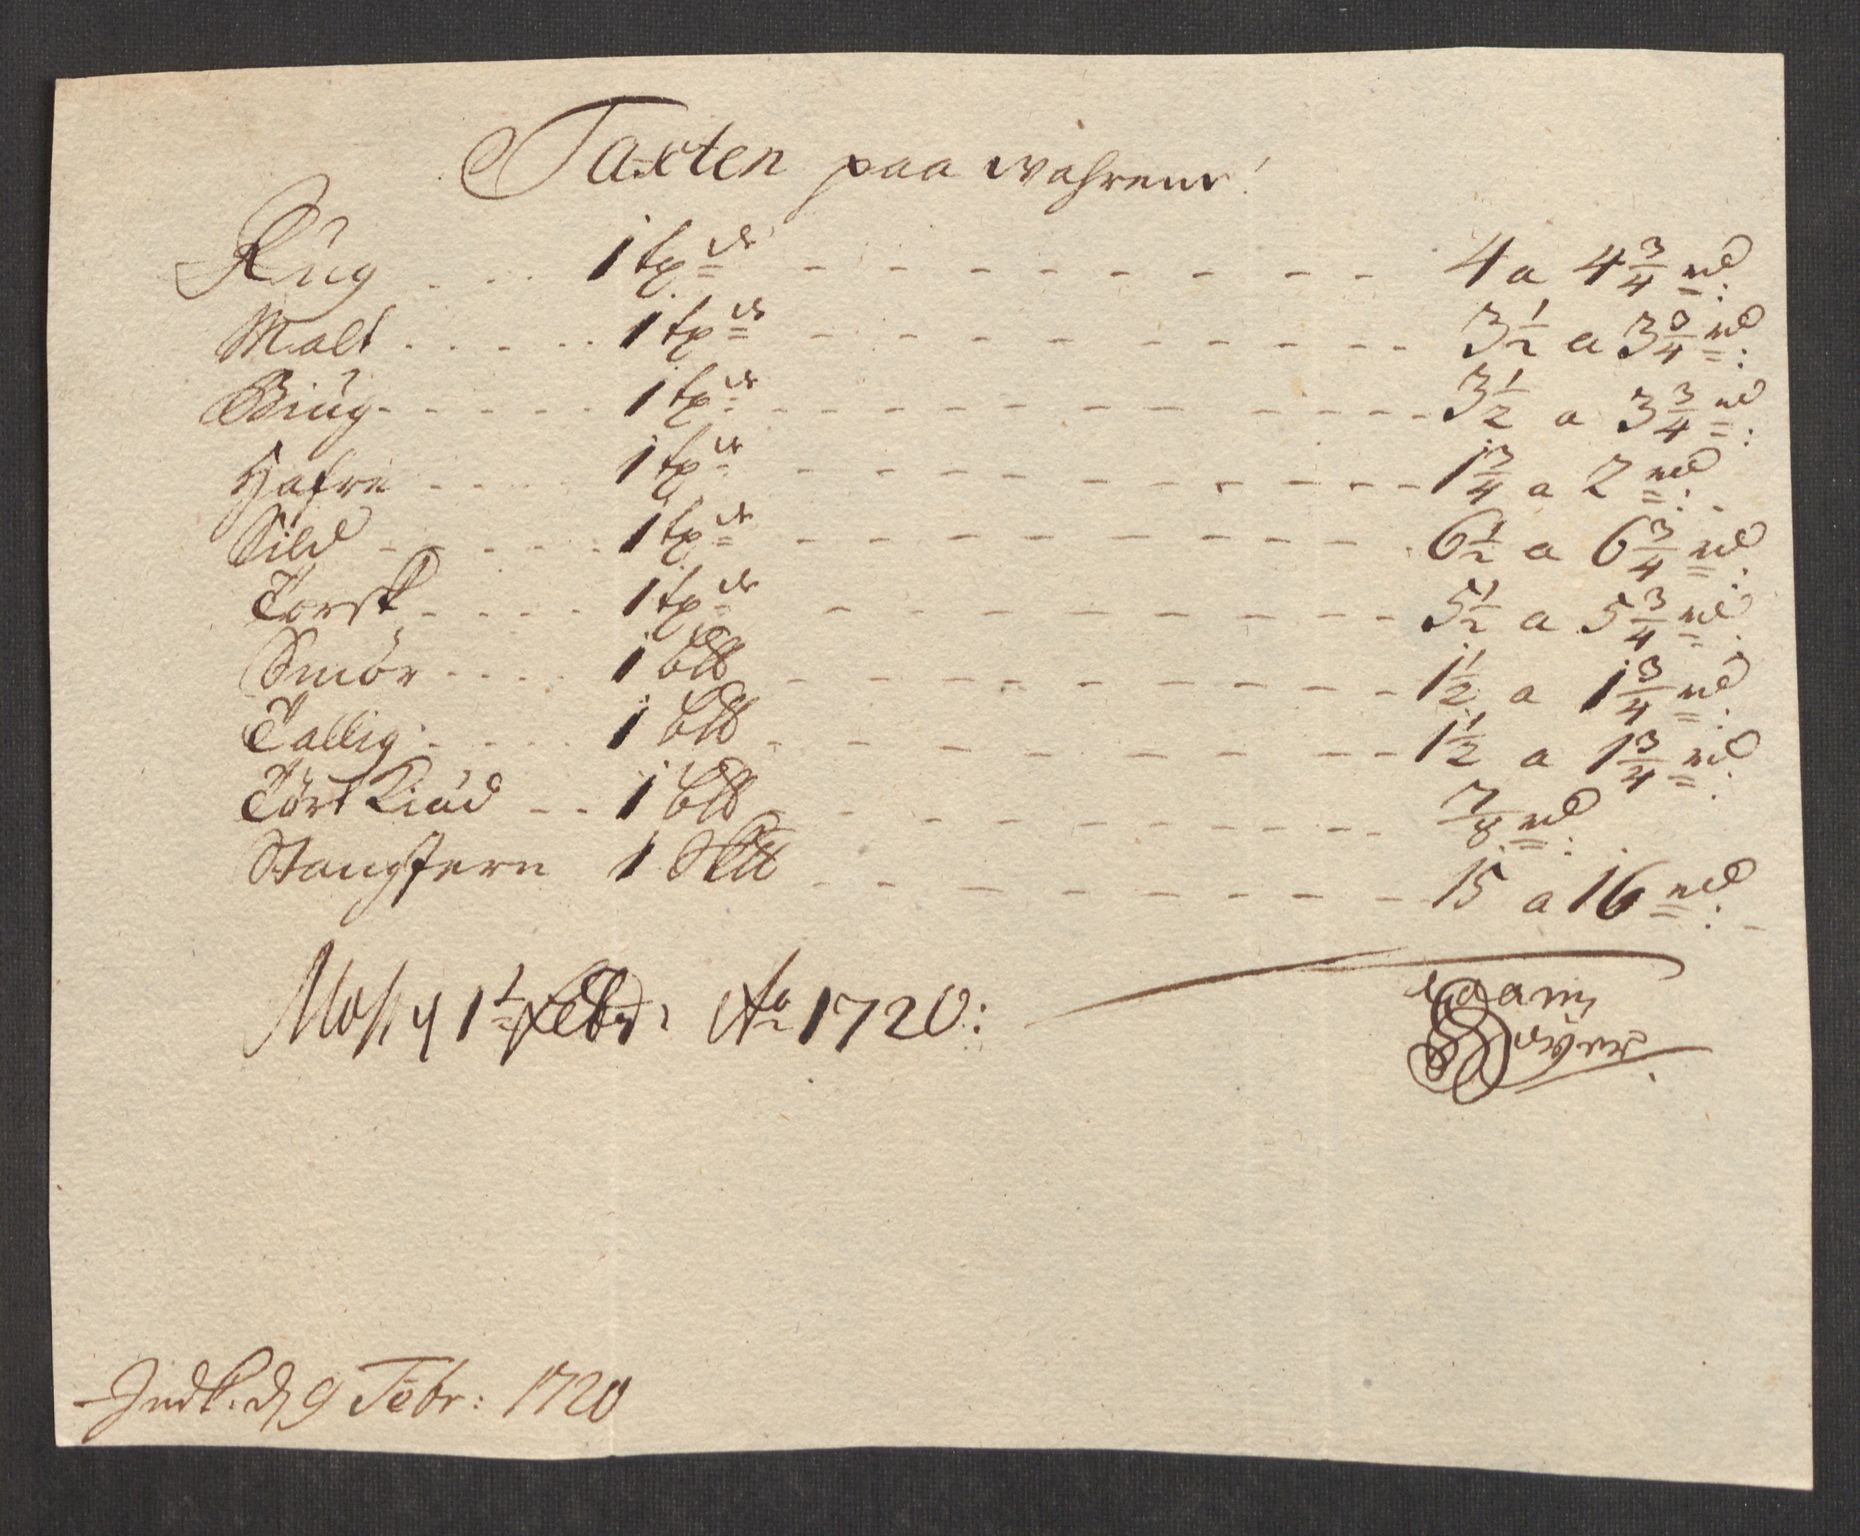 Taxten paa wahrene!
Rug . . . 1 tøde - - - 4 a 4 3/4 rd:
Malt . . . . . 1 tøde - - - 3 1/2 a 3 3/4 rd:
Biug - - - - 1 tøde - - - 3 1/2 a 3 3/4 rd:
Hafre - - - 1 tøde - - - 1 3/4 a 2 rd:
Sild - - - - 1 tøde - - - 6 1/2 a 6 3/4 rd:
Torsk - - - 1 tøde - - - 5 1/2 a 5 3/4 rd:
Smör - - - 1 b℔ - - - 1 1/2 a 1 3/4 rd:
Tallig - - - 1 b℔ - - - 1 1/2 a 1 3/4 rd:
Tört Kiöd - - 1 b℔ - - - 7/8 rd:
Stangjern 1 Sk℔ - - - 15 a 16 rd:
Moss d 1t Febr: Ao 1720:
Indk. d 9 Febr: 1720